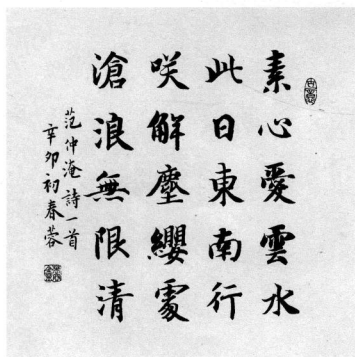 素心愛雲水
此日東南行
咲解塵纓處
滄浪無限清
范仲淹詩一首
辛卯初春蓉